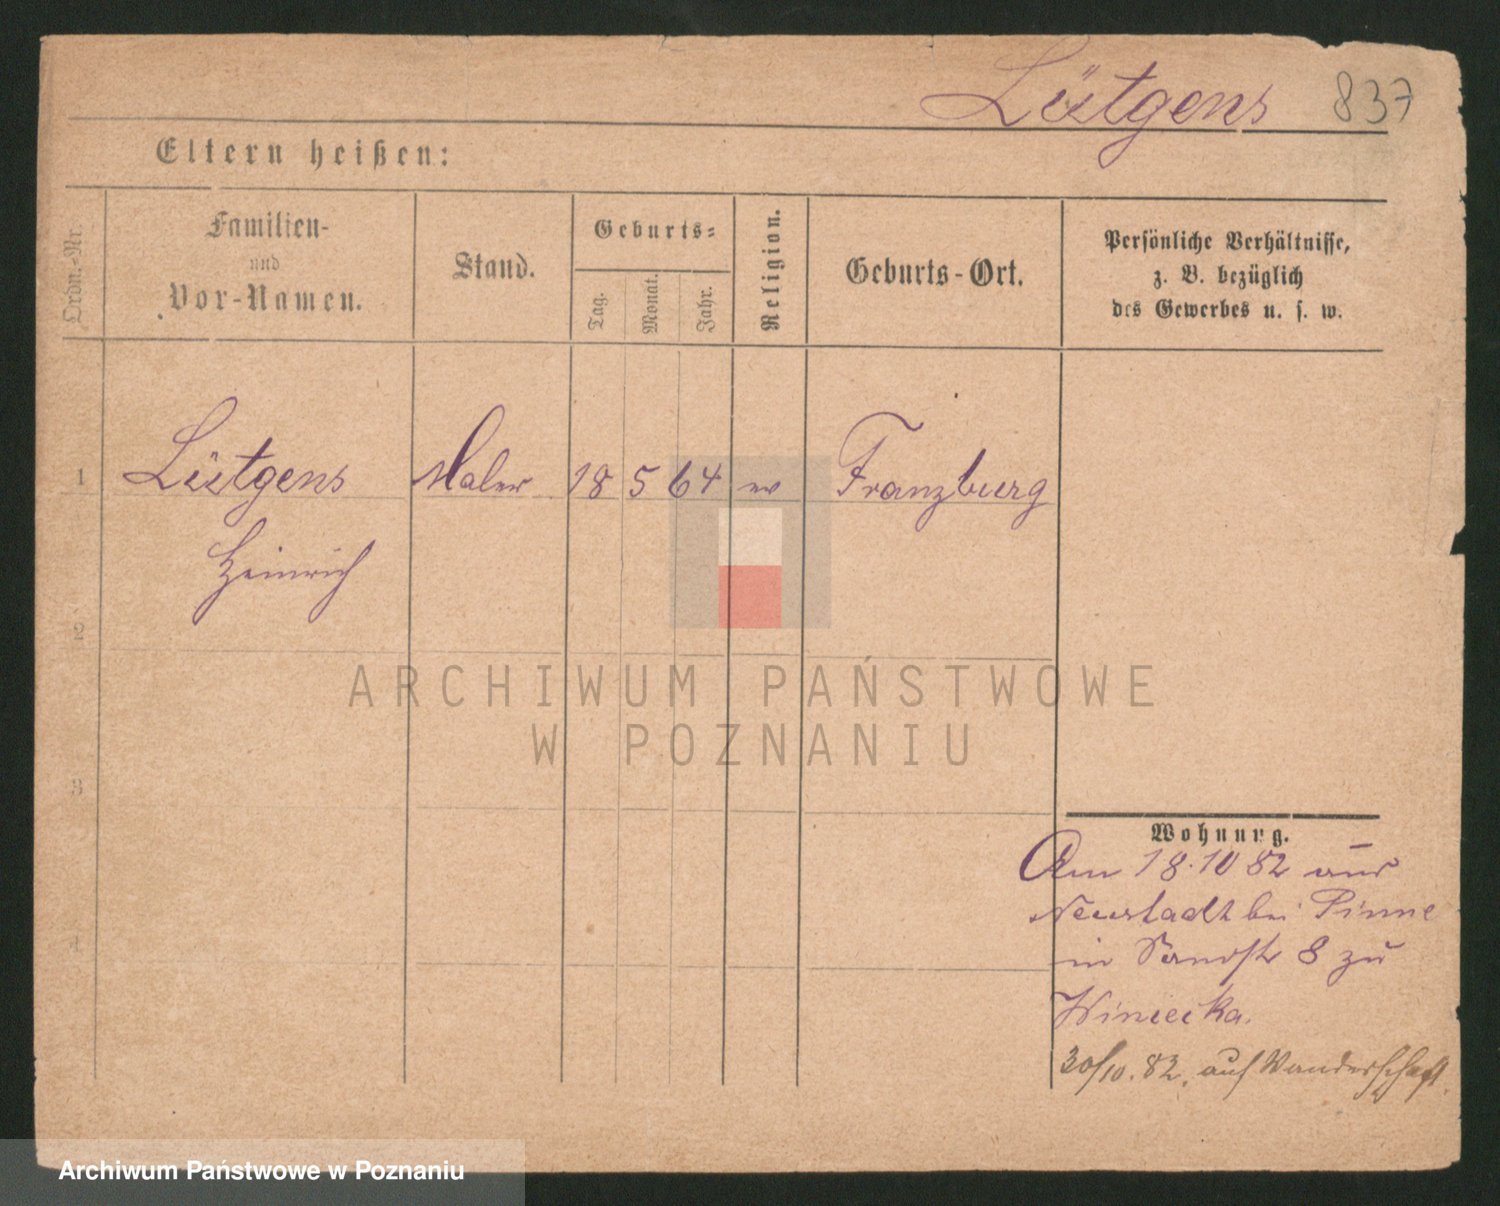 Lütgens 837
Eltern heißen:
Ordn.-Nr.
Familien-
und
Vor-Namen.
Stand.
Geburts-
Tag.
Monat.
Jahr.
Religion.
Geburts-Ort.
Persönliche Verhältnisse,
z. B. bezüglich
des Gewerbes u. s. w.
1 Lütgens Maler 18 5 64 ev Franzburg
Heinrich
2
3
4
Wohnung.
Am 18.10 82 aus
Neustadt bei Pinne
in Sandstr 8 zu
Winiecka.
30/10. 82. auf Wanderschaft.
ARCHIWUM PAŃSTWOWE
W POZNANIU
Archiwum Państwowe w Poznaniu